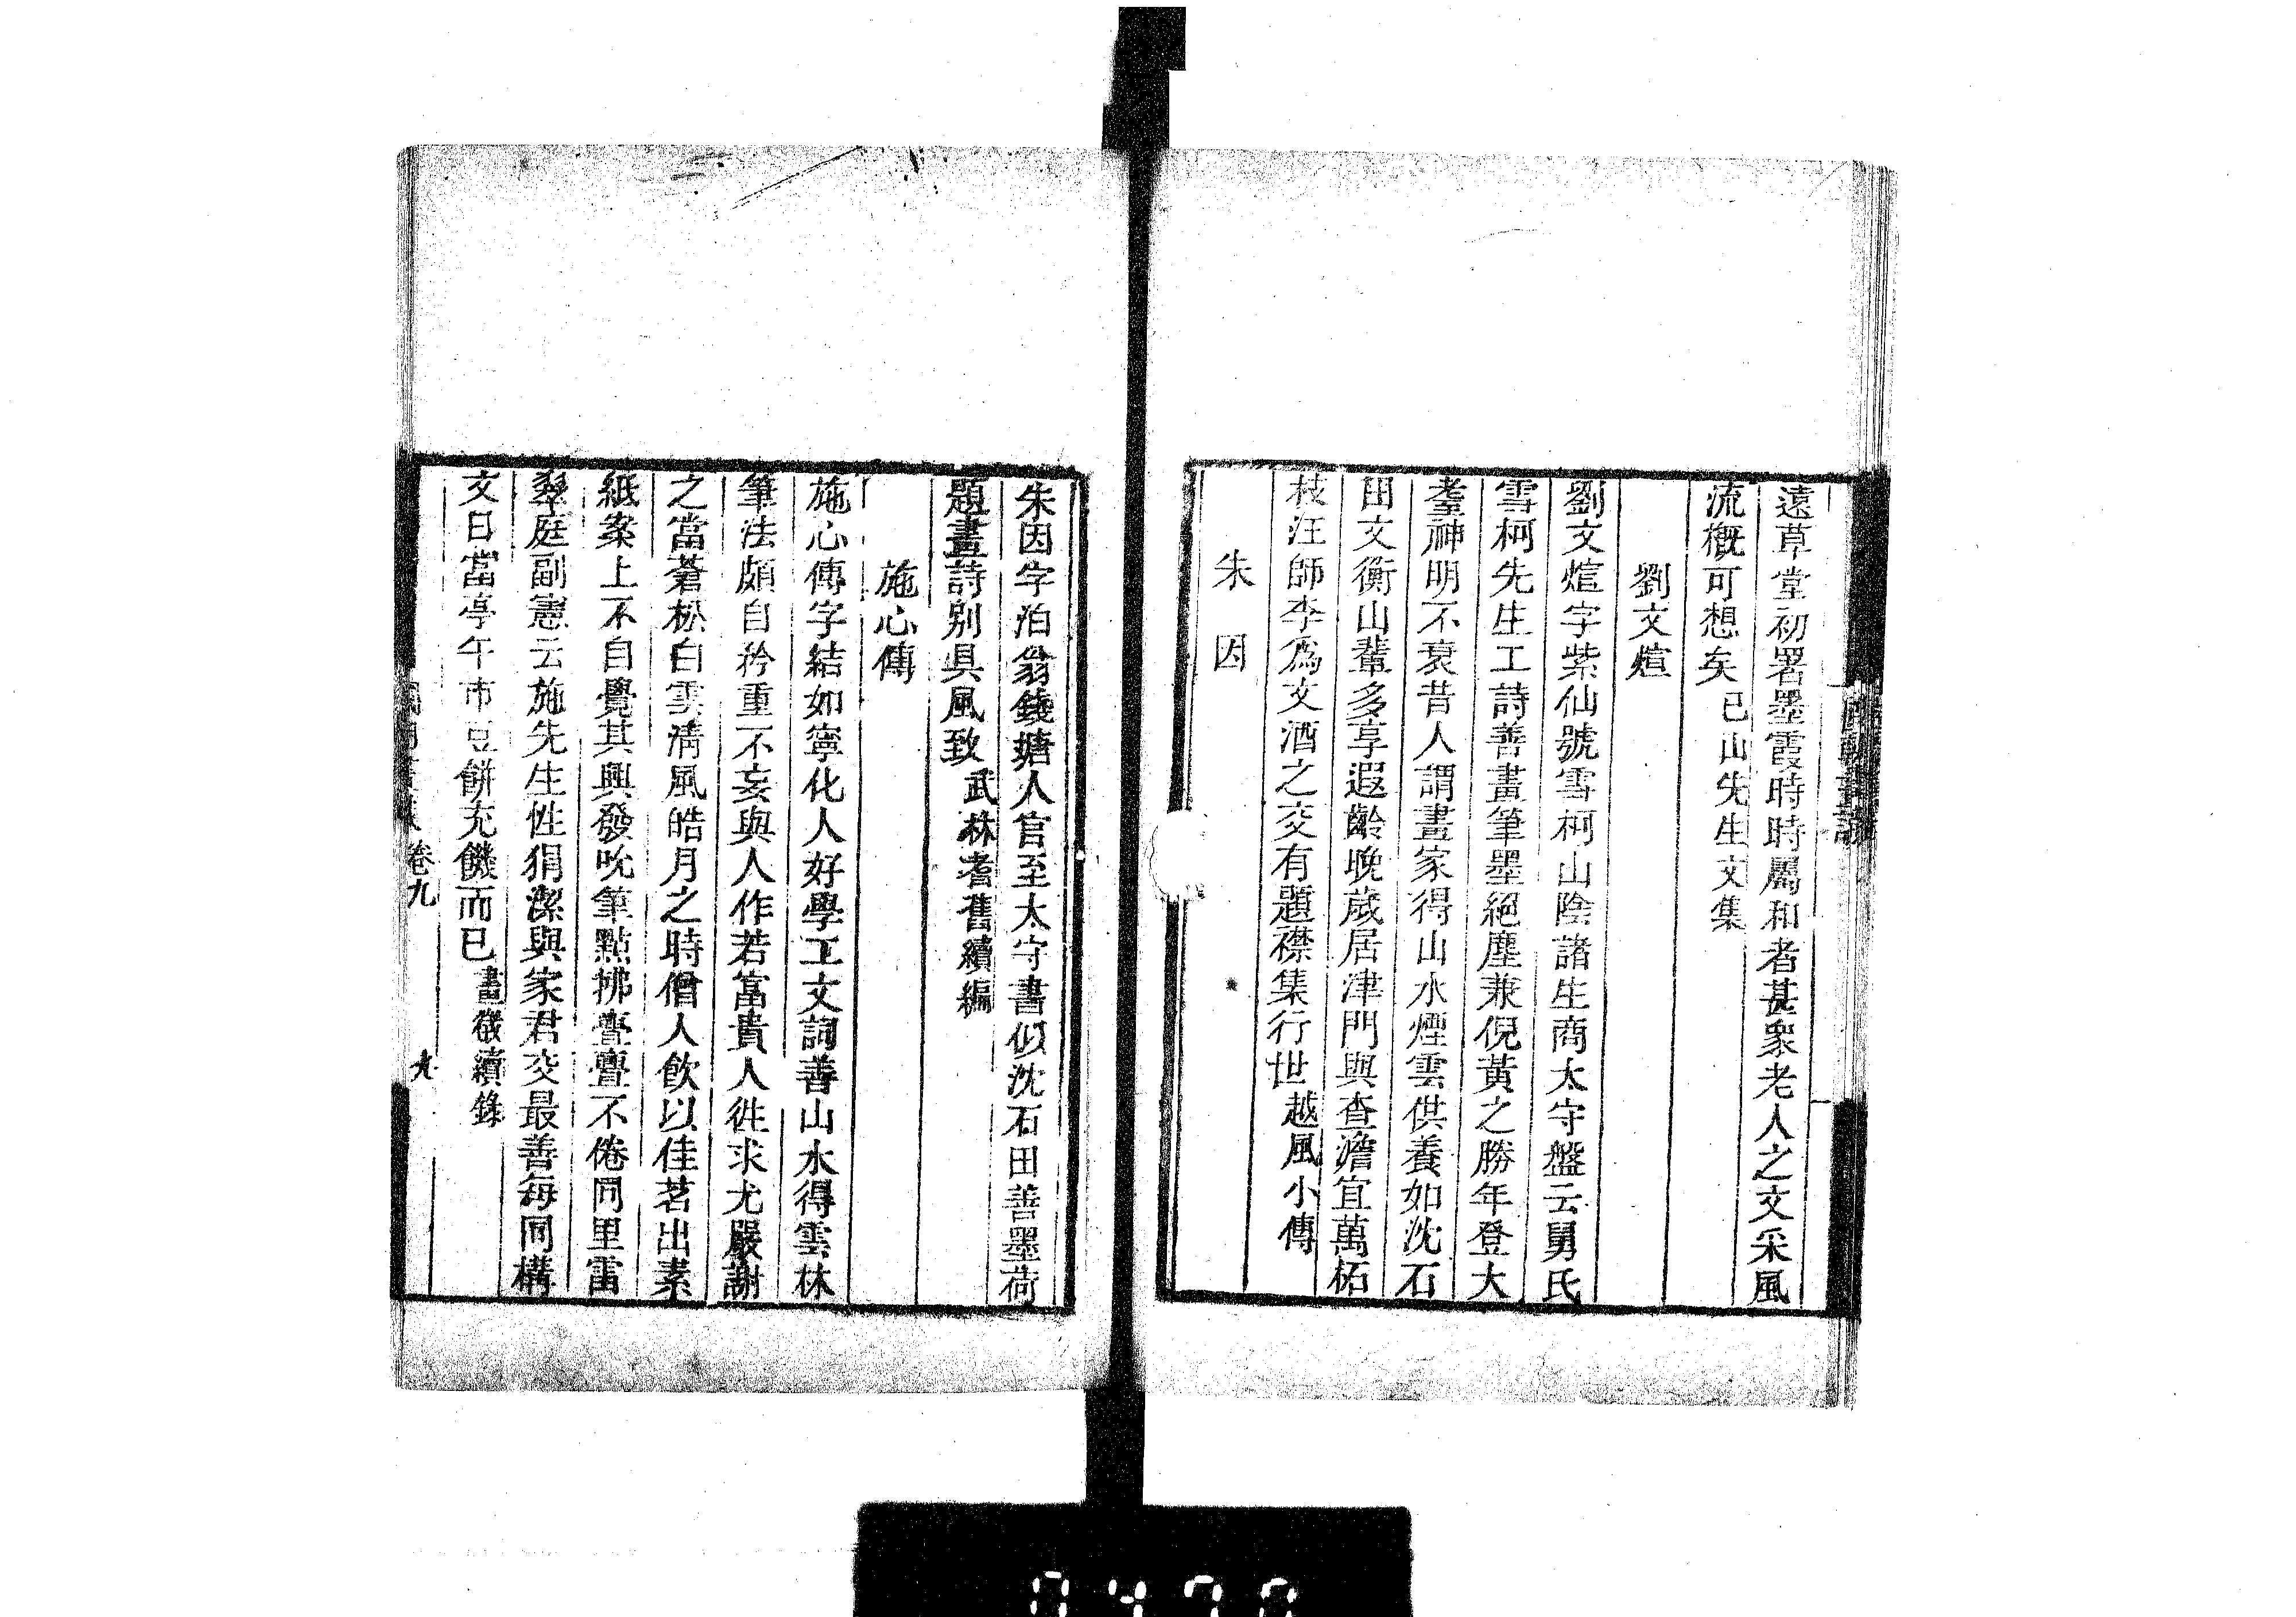 遠草堂初署墨霞時時屬和者甚衆老人之文采風
流概可想矣 已山先生文集
劉文煊
劉文煊字紫仙號雪柯山陰諸生商太守盤云舅氏
雪柯先生工詩善畫筆墨絕塵兼倪黃之勝年登大
耋神明不衰昔人謂畫家得山水煙雲供養如沈石
田文衡山輩多享遐齡晚歲居津門與查澹宜萬柘
枝汪師李爲文酒之交有題襟集行世 越風小傳
朱因
朱因字泊翁錢塘人官至太守書似沈石田善墨荷
題畫詩別具風致 武林耆舊續編
施心傳
施心傳字結如寧化人好學工文詞善山水得雲林
筆法頗自矜重不妄與人作若富貴人徃求尤嚴謝
之當蒼松白雲淸風皓月之時僧人飲以佳茗出素
紙案上不自覺其興發吮筆點拂亹亹不倦同里雷
翠庭副憲云施先生性狷潔與家君交最善每同構
文日當亭午市豆餅充饑而已 畫徵續錄
卷九
九
0470